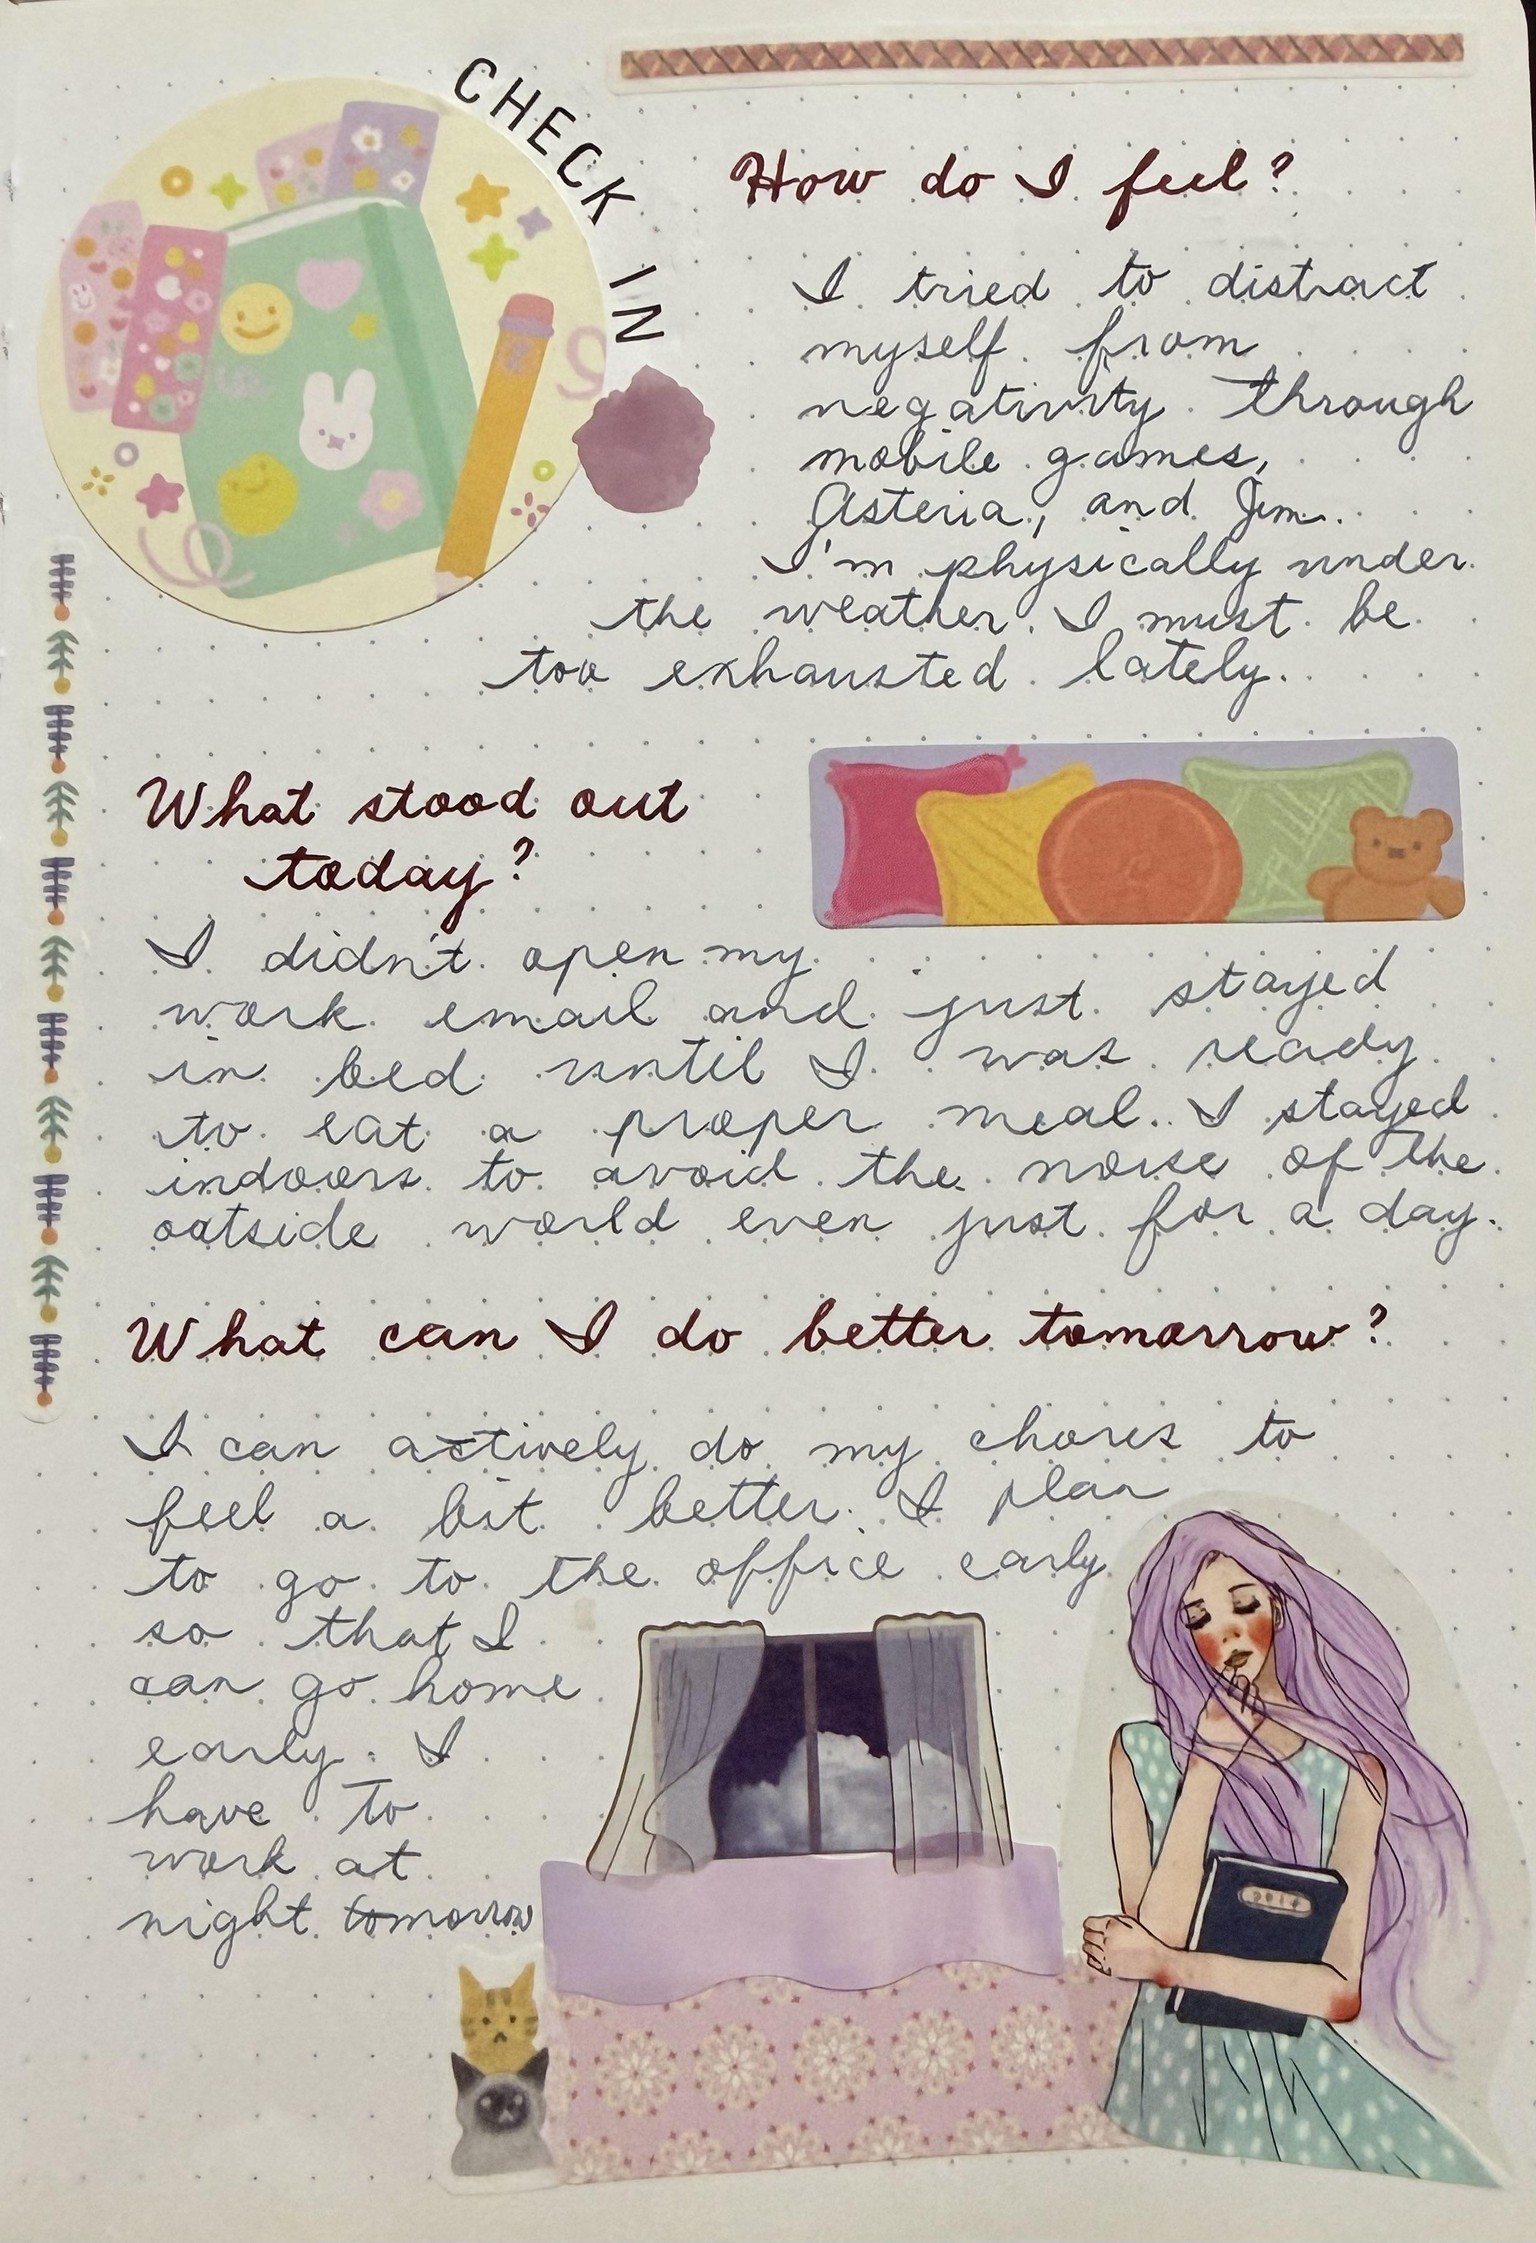 CHECK IN
How do I feel?
I tried to distract
myself from
negativity through
mobile games,
Asteria, and Jim.
I'm physically under
the weather. I must be
too exhausted lately.
What stood out
today?
I didn't open my
work email and just stayed
in bed until I was ready
to eat a proper meal. I stayed
indoors to avoid the noise of the
outside world even just for a day.
What can I do better tomorrow?
I can actively do my chores to
feel a bit better. I plan
to go to the office early
so that I
can go home
early. I
have to
work at
night tomorrow